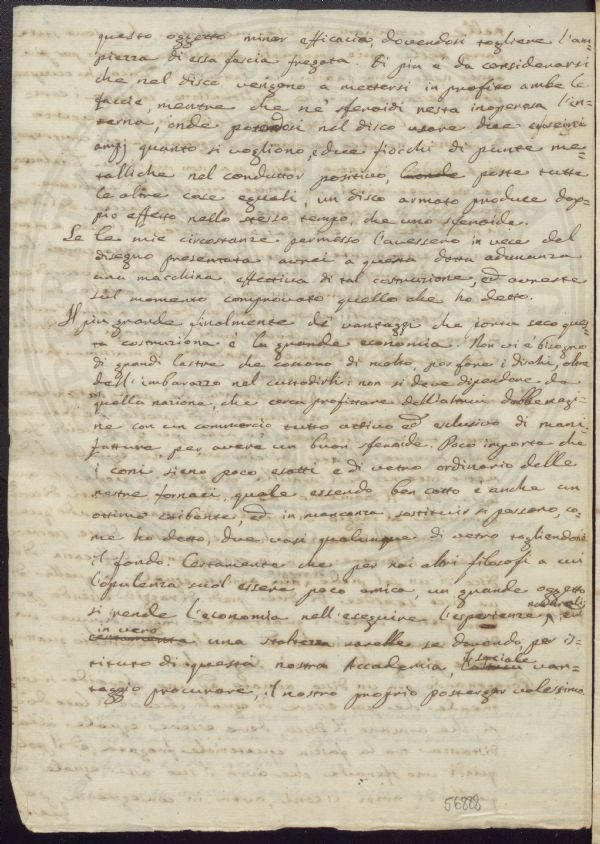 questo oggetto minor efficacia, dovendosi togliere l'am=
piezza di essa fascia fregata. Di più è da considerarsi
che nel disco vengono a mettersi in profitto ambe le
faccie, mentre che ne' sferoidi resta inoperosa l'in=
terna, onde potendosi nel disco usare due cuscini
ampj quanto si vogliono, e due fiocchi di punte me=
talliche nel conduttor positivo, poste tutte
le altre cose eguali, un disco armato produce dop=
pio effetto nello stesso tempo, che uno sferoide.
Se le mie circostanze permesso l'avessero in vece del
disegno presentata avrei a questa dotta adunanza
una macchina effettiva di tal costruzione, ed avreste
sul momento comprovato quello che ho detto.
Il più grande finalmente de' vantaggi che porta seco ques=
ta costruzione è la grande economia. Non vi è bisogno
di grandi lastre che costano di molto, per fare i dischi, oltre
dell'imbarazzo nel custodirli: non si deve dipendere da
quella nazione, che cerca profittare dell'altrui
con un commercio tutto attivo ed esclusivo di mani=
fatture, per avere un buon sferoide. Poco importa che
i coni sieno poco esatti e di vetro ordinario delle
nostre fornaci, quale essendo ben cotto è anche un
ottimo coibente, ed in mancanza sostituir si possono, co=
me ho detto, due vasi qualunque di vetro togliendone
il fondo. Certamente che per noi altri filosofi a cui
l'opulenza suol essere poco amica, un grande oggetto
si rende l'economia nell'eseguire l'esperienze, ed
in vero
certamente una stoltezza sarebbe se dovendo per is=
tituto di questa nostra Accademia, il sociale van=
taggio procurare, il nostro proprio postergar volessimo.
56888